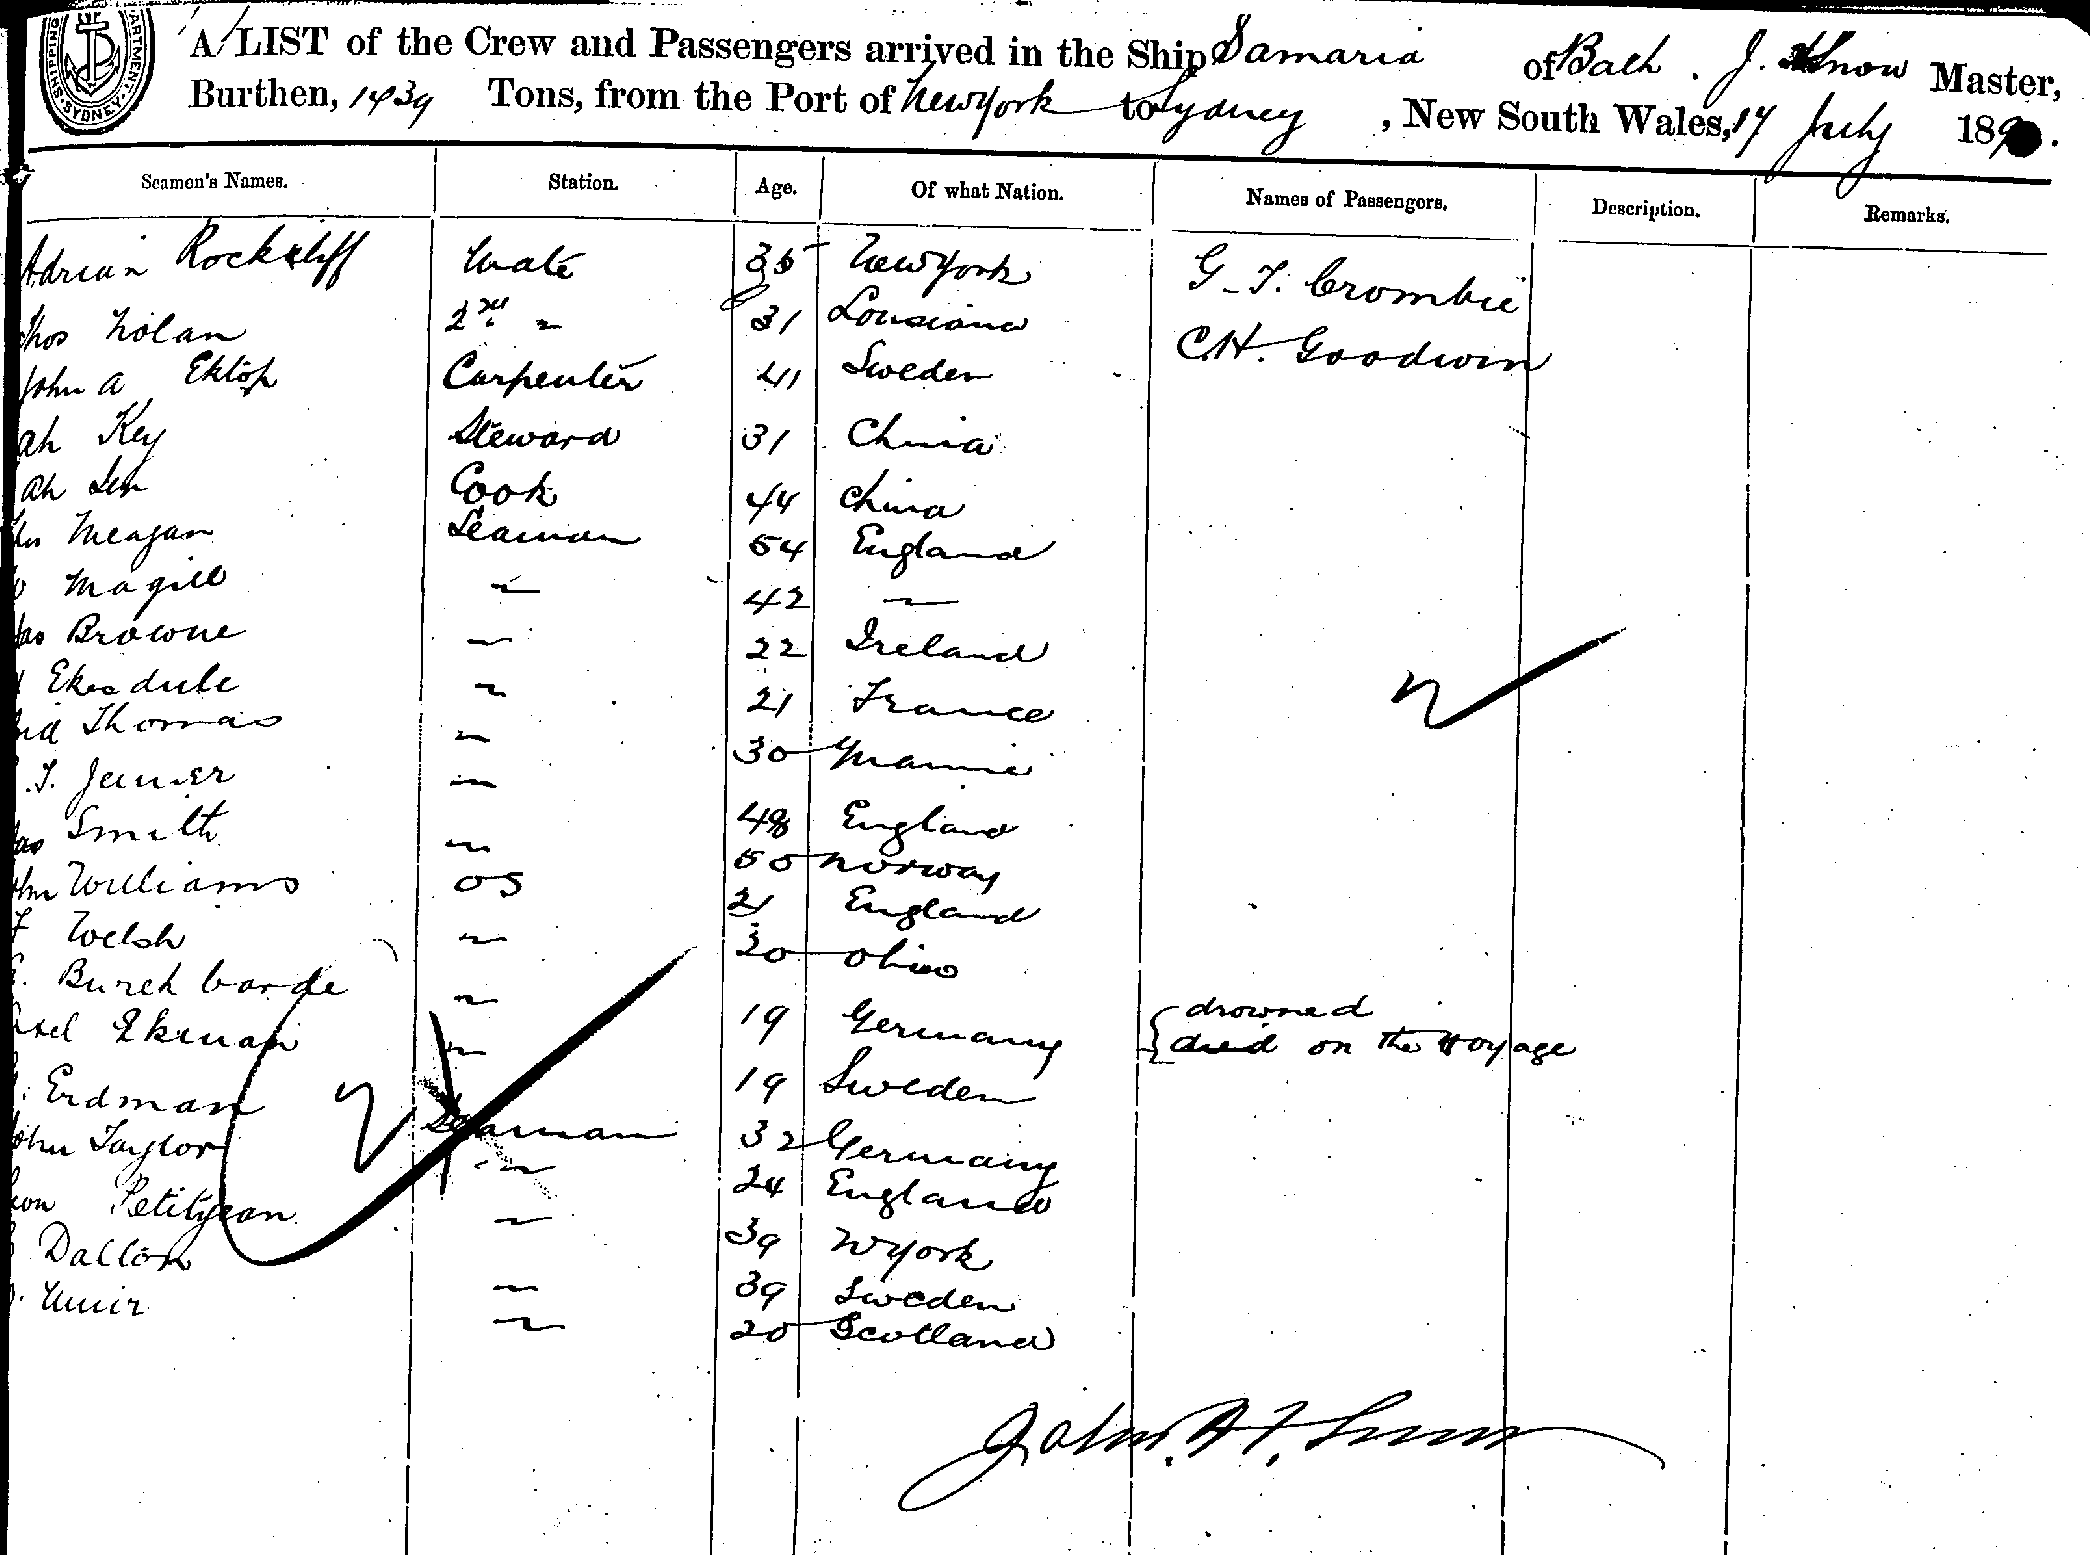 A LIST of the Crew and Passengers arrived in the Ship Samaria of Bath . J. H Snow Master,
Burthen, 1439 Tons, from the Port of New York to Sydney , New South Wales, 17 July 189 .
Seamen's Names. Station. Age. Of what Nation. Names of Passengers. Description. Remarks.
Adrian Rockcliff Mate 35 New York G. F. Crombie
Thos Nolan 2nd " 31 Lousiana C.H. Goodwin
John A Sweden Carpenter 41
ah Key Steward 31 China
ah Cook 44 China
Meagan Seaman 54 England
Magill " 42 "
Jas Browne " 22 Ireland
" 21 France
Thomas " 30
T. " 48 England
Jas Smith " 50 Norway
John Williams OS 21 England
F Welsh " 20 Ohio
Burchharde " 19 Germany drowned
Axel Ekman " 19 Sweden died on the voyage
Erdman Seaman 32 Germany
John Taylor " 24 England
Leon Petitjean " 39 N York
Dalton " 39 Sweden
Muir " 20 Scotland
John. H. Snow